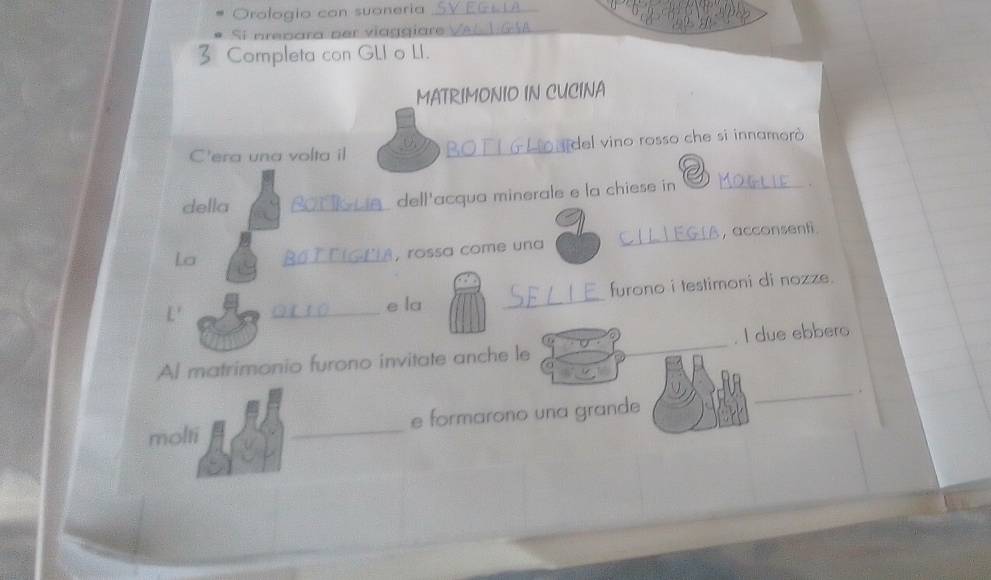 • Orologio con suoneria SVEGLIA
• Si prepara per viaggiare VALIGIA
3 Completa con GLI o LI.
MATRIMONIO IN CUCINA
C'era una volta il BOTIGLIONE del vino rosso che si innamorò
della BOTTIGLIA dell'acqua minerale e la chiese in MOGLIE.
La BOTTIGLIA, rossa come una CILIEGIA, acconsentì.
L' OLIO e la SELIE furono i testimoni di nozze.
Al matrimonio furono invitate anche le ______. I due ebbero
molti ______ e formarono una grande ______.